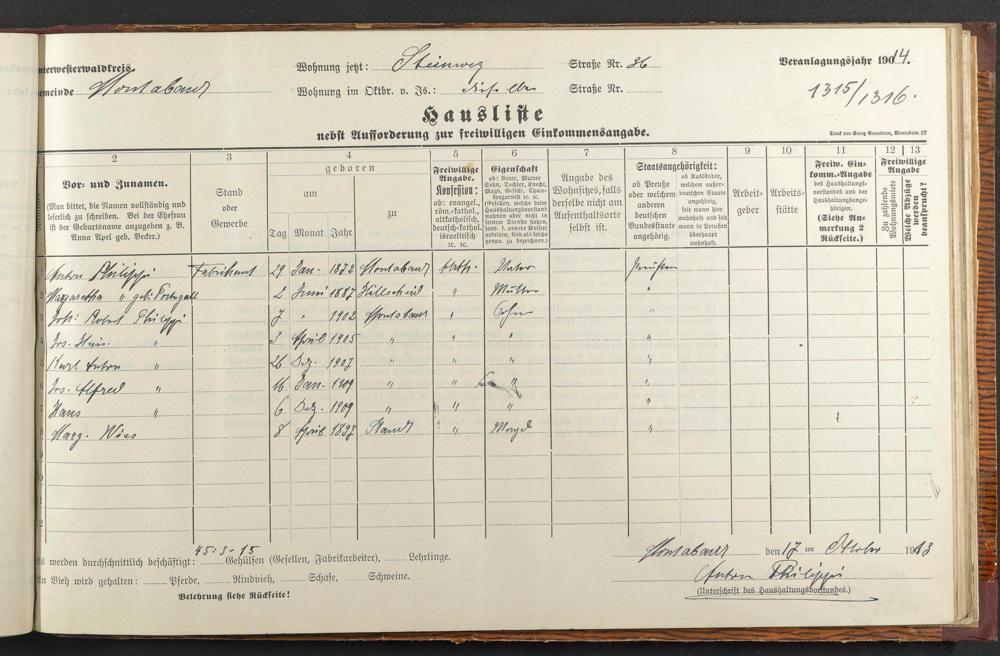 nterwesterwaldkreis Wohnung jetzt: Steinweg Straße Nr. 26 Veranlagungsjahr 1914.
emeinde Montabaur Wohnung im Oktbr. v. Js.: dieselbe Straße Nr. 1315/1316.
Hausliste
nebst Aufforderung zur freiwilligen Einkommensangabe.
2 3 4 5 6 7 8 9 10 11 12 13
Vor- und Zunamen.
(Man bittet, die Namen vollständig und
leserlich zu schreiben. Bei der Ehefrau
ist der Geburtsname anzugeben z. B.
Anna Apel geb. Becker.)
Stand
oder
Gewerbe
geboren
am zu
Tag Monat Jahr
Freiwillige
Angabe.
Konfession:
ob: evangel.,
röm.-kathol.,
altkatholisch,
deutsch-kathol.
israelitisch
ec. ec.
Eigenschaft
ob: Vater, Mutter
Sohn, Tochter, Knecht,
Magd, Geselle, Cham-
bregarnist ec. ec.
(Gesellen, welche beim
Haushaltungsvorstand
wohnen aber nicht in
seinem Dienste stehen,
sond. f. andere Meister
arbeiten, sind als solche
genau zu bezeichnen.)
Angabe des
Wohnsitzes, falls
derselbe nicht am
Aufenthaltsorte
selbst ist.
Staatsangehörigkeit:
ob Preuße
oder welchem
anderen
deutschen
Bundesstaate
angehörig.
ob Ausländer,
welchem außer-
deutschen Staate
angehörig,
seit wann hier
wohnhaft und seit
wann in Preußen
überhaupt
wohnhaft.
Arbeit-
geber
Arbeits-
stätte
Freiw. Ein-
komm.-Angabe
des Haushaltungs-
vorstandes und der
Haushaltungsange-
hörigen.
(Siehe An-
merkung 2
Rückseite.)
Freiwillige
Angabe
Zu zahlende
Wohnungsmiete
Welche Abzüge
werden
beansprucht?
1 Anton Philippi Fabrikant 29 Jan. 1872 Montabaur kath. Vater Preußen
2 Margaretha " geb. Portugall 2 Juni 1887 Hillscheid " Mutter "
3 Joh. Robert Philippi 7 " 1902 Montabaur " Sohn "
4 Jos. " 3 April 1905 " " " "
5 Karl Anton " 26 Dez. 1907 " " "
6 Jos. Alfred " 16 Jan. 1909 " " " "
7 Hans " 6 Dez. 1909 " " " "
8 Marg. 8 April 1897 " Magd "
Es werden durchschnittlich beschäftigt: 45:3-15 Gehülfen (Gesellen, Fabrikarbeiter), Lehrlinge.
An Vieh wird gehalten: Pferde, Rindvieh, Schafe, Schweine.
Belehrung siehe Rückseite!
Montabaur den 17 ten Oktober 1913
Anton Philippi
(Unterschrift des Haushaltungsvorstandes.)